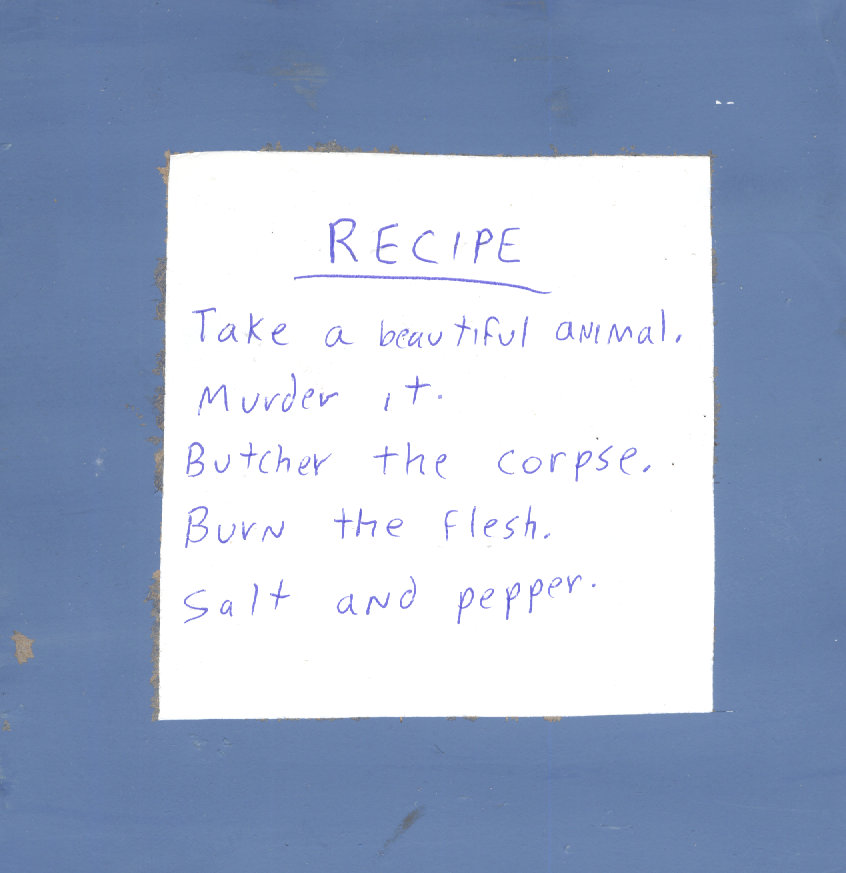 RECIPE
Take a beautiful animal.
Murder it.
Butcher the corpse.
Burn the flesh.
Salt and pepper.